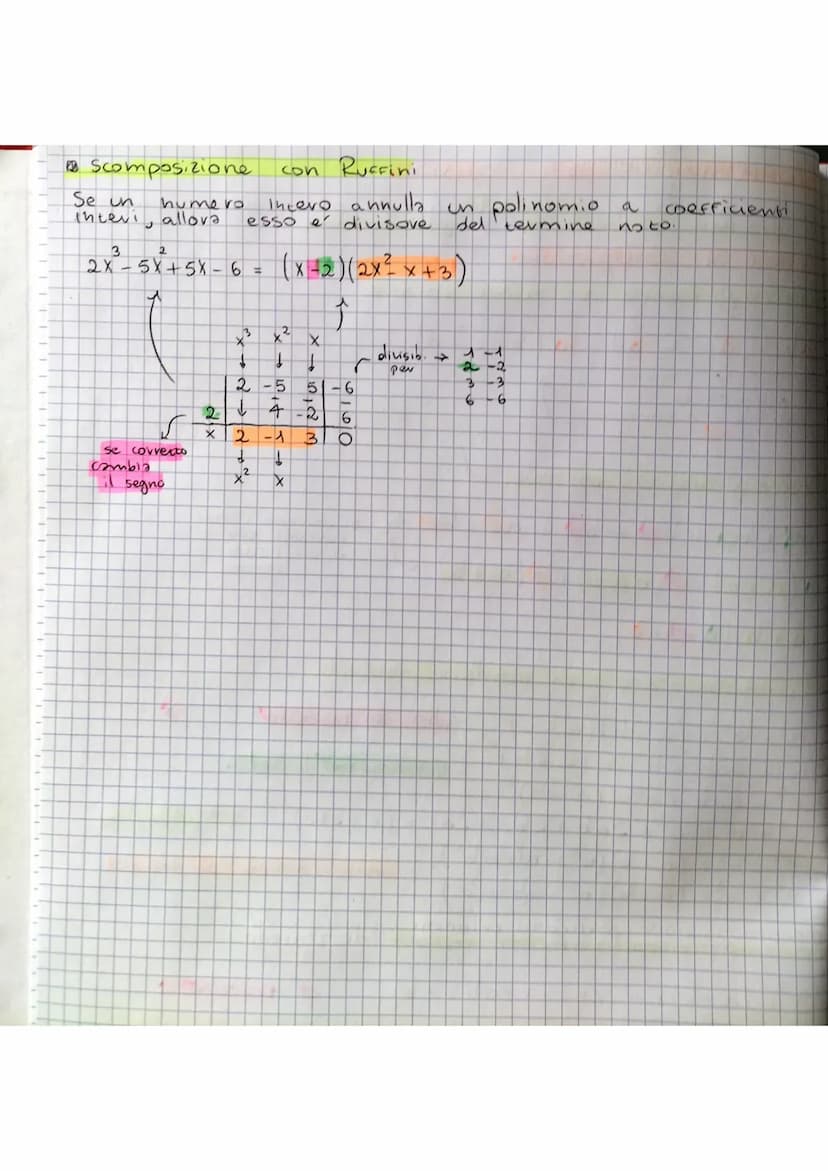 Scomposizione con Ruffini
Se un numero intero annulla un polinomio a coefficienti
interi, allora esso e' divisore del termine noto.
2x³ - 5x² + 5x - 6 = (x-2)(2x² - x + 3)
x³ x² x
↓ ↓ ↓
divisib. → 1 -1
per 2 -2
3 -3
6 -6
2 -5 5 | -6
2 ↓ 4 -2 | 6
x 2 -1 3 | 0
↓ ↓
x² x
se corretto
cambia
il segno